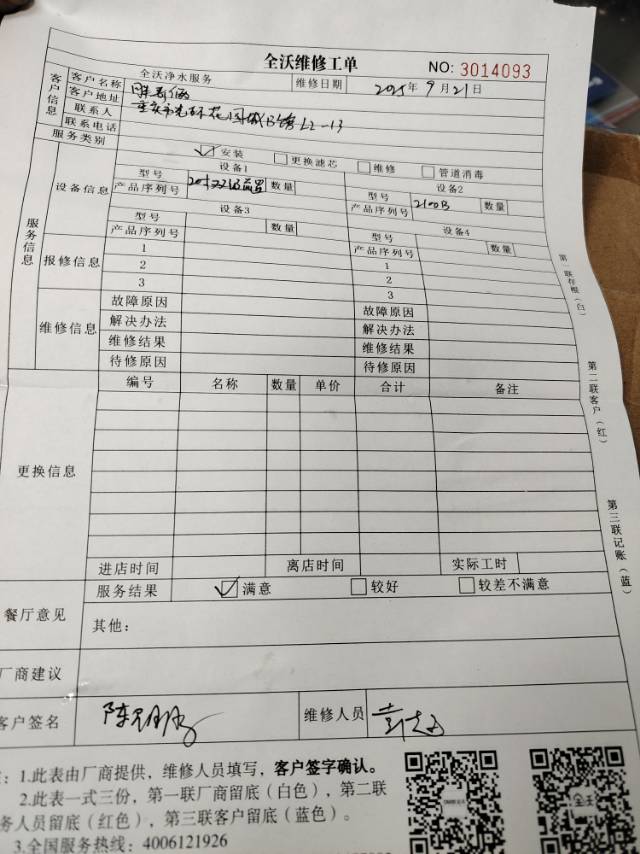 全沃维修工单 NO: 3014093
客户信息
客户名称 全沃净水服务 维修日期 2025年9月21日
客户地址
联系人 L2-13
联系电话
服务类别 安装 更换滤芯 维修 管道消毒
服务信息
设备信息 设备1 设备2
型号 数量 型号 2100B 数量
产品序列号 产品序列号
设备3 设备4
型号 数量 型号 数量
产品序列号 产品序列号
报修信息 1 1
2 2
3 3
维修信息 故障原因 故障原因
解决办法 解决办法
维修结果 维修结果
待修原因 待修原因
更换信息 编号 名称 数量 单价 合计 备注
进店时间 离店时间 实际工时
餐厅意见 服务结果 满意 较好 较差不满意
其他：
厂商建议
客户签名 维修人员
第一联存根（白）
第二联客户（红）
第三联记账（蓝）
：1.此表由厂商提供，维修人员填写，客户签字确认。
2.此表一式三份，第一联厂商留底（白色），第二联
务人员留底（红色），第三联客户留底（蓝色）。
3.全国服务热线：4006121926